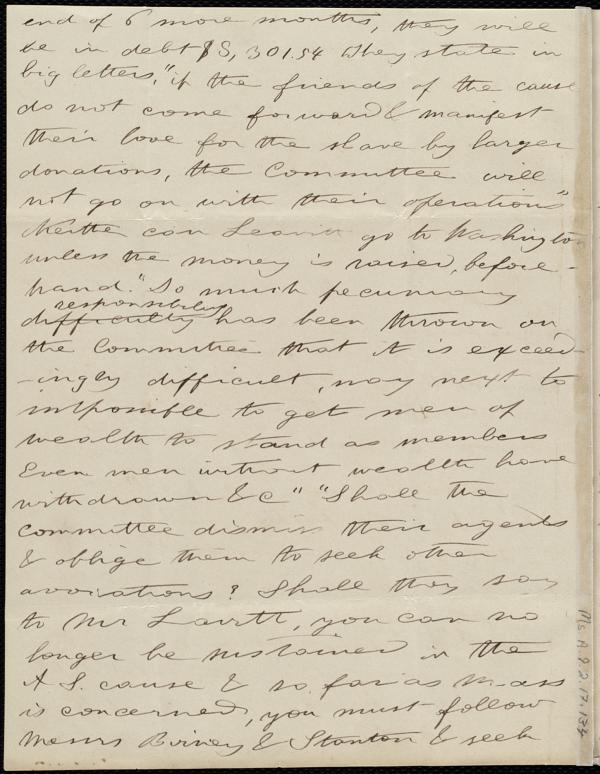 end of 6 more months, they will
be in debt $8,301.54 They state in
big letters, "if the friends of the cause
do not come forward & manifest
their love for the slave by larger
donations, the Committee will
not go on with their operations"
Neither can Leavitt go to Washington
unless the money is raised, before-
hand." So much pecuniary
responsibility
difficulty has been thrown on
the Committee that it is exceed-
-ingly difficult, nay next to
impossible to get men of
wealth to stand as members
Even men without wealth have
withdrawn &c" "Shall the
committee dismiss their agents
& oblige them to seek other
avocations? Shall they say
to Mr Leavitt, you can no
longer be sustained in the
A S. cause & so far as Mass
is concerned, you must follow
Messrs Birney & Stanton & seek
Ms. A.9.2.17.134